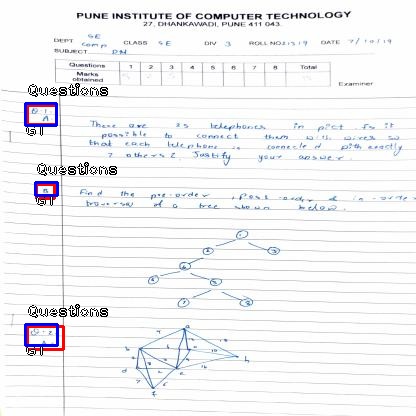 PUNE INSTITUTE OF COMPUTER TECHNOLOGY
27, DHANKAWADI, PUNE 411 043.
DEPT SE Comp CLASS SE DIV 3 ROLL NO. 21519 DATE 7/10/19
SUBJECT DM
Questions 1 2 3 4 5 6 7 8 Total
Marks obtained
Examiner
Questions
Q 1
A
GT
There are 25 telephones in pict. Is it
possible to connect them with wires so
that each telephone is connected with exactly
7 others? Justify your answer.
Questions
B
GT
Find the pre-order, post-order & in-order
traversal of a tree shown below.
Questions
Q. 2
A
GT
a
b
d
e
f
h